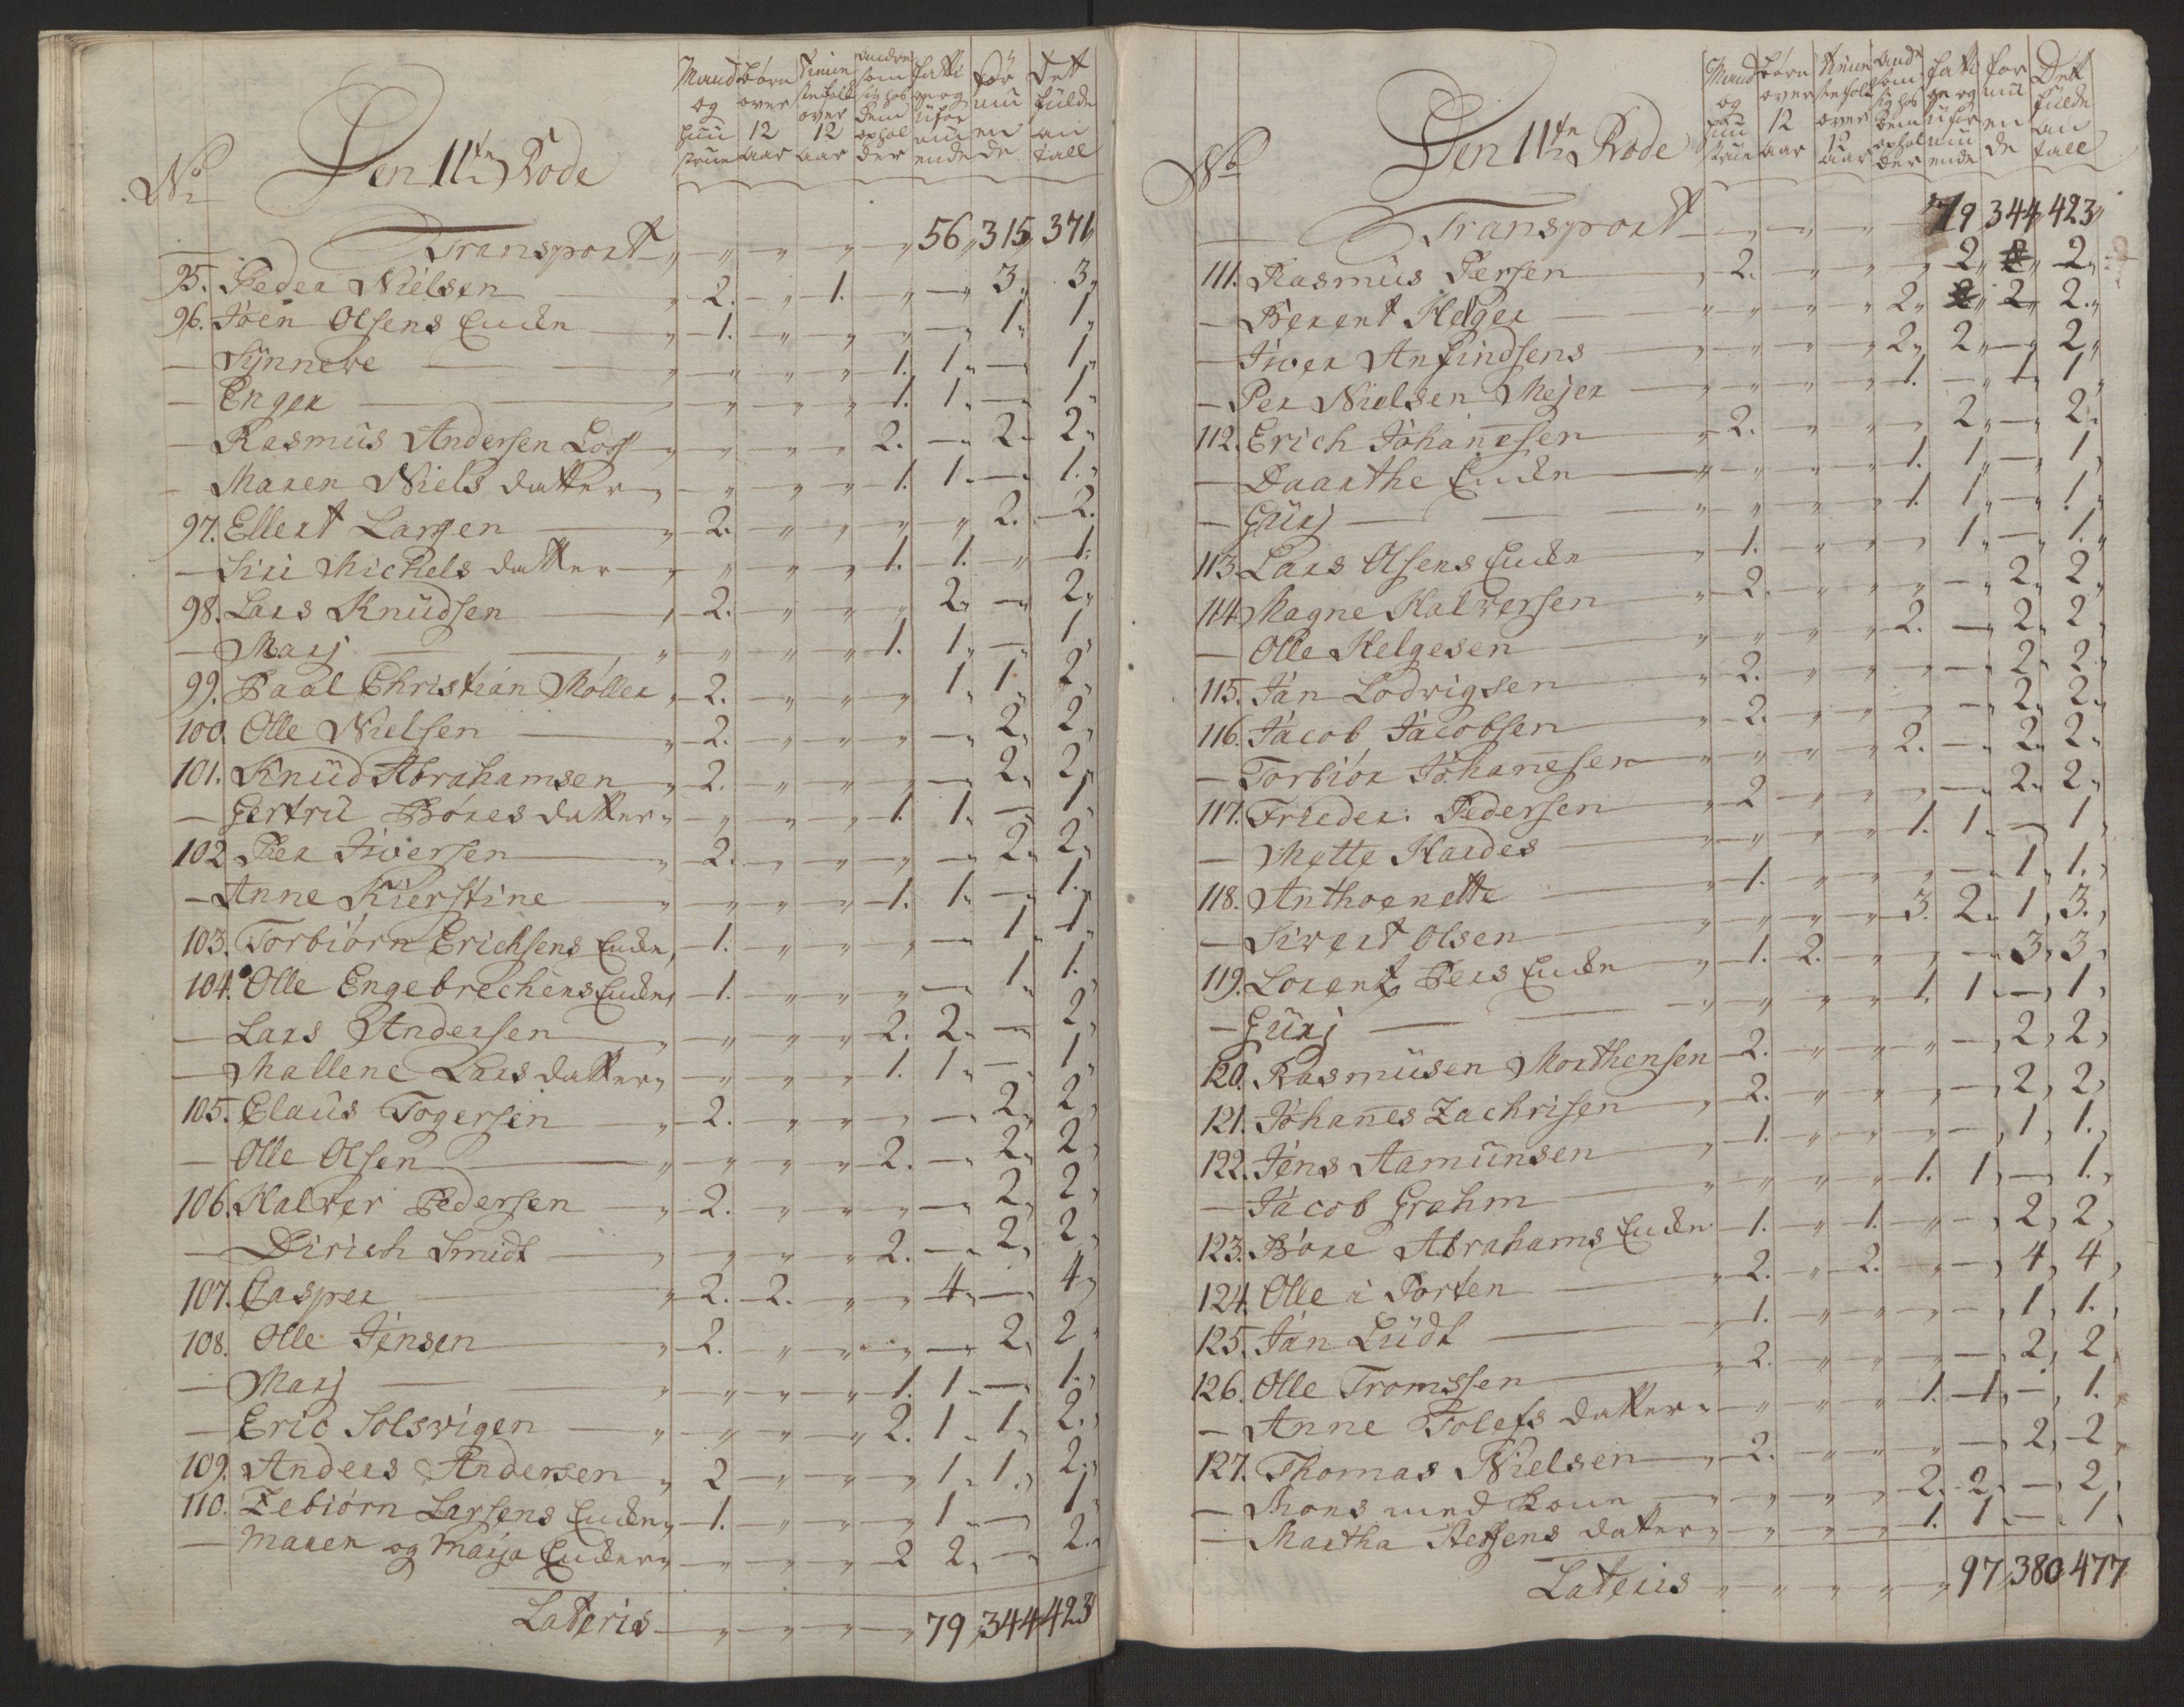 No Den 11te Rode Mand og Huustrue børn over 12 aar Tienneste folk over 12 aar andre som sig hos dem opholder fatti ge og uformuende for muende Det fulde antall
Transport " " " " " 56 " 315 " 371 "
95. Peder Nielsen 2. " 1. " — 3. 3.
96. Joen Olsens Encken 1. " " " — 1. 1.
— Synneve " " " 1. 1 — 1.
— Enger " " " 1. 1 — 1.
— Rasmus Andersen Loss " " " 2. — 2. 2.
— Maren Niels datter " " " 1. 1 — 1.
97. Ellert Larsen 2. " " " " 2. 2.
— Siri Michels datter " " " 1. 1. " 1.
98. Lars Knudsen 2. " " " 2 — 2.
— Marj " " " 1. 1 — 1.
99. Paal Christian Møller 2. " " " 1 1 2.
100. Olle Nielsen 2. " " " — 2. 2.
101. Knud Abrahamsen 2. " " " — 2. 2.
— Gertru Børes datter " " " 1. 1 — 1.
102. Per Iversen 2. " " " — 2. 2.
— Anne Kierstine " " " 1. 1. — 1.
103. Torbiørn Erichsens Encke 1. " " " — 1. 1.
104. Olle Engebrechens Encke 1. " " " — 1. 1.
— Lars Andersen " " " 2. 2. — 2.
— Mallene Lars datter " " " 1. 1 — 1.
105. Claus Togersen 2. " " " — 2. 2.
— Olle Olsen " " " 2. — 2. 2.
106. Halver Pedersen 2. " " " — 2. 2.
— Dirich Smidt " " " 2. — 2. 2.
107. Casper 2. 2. " " 4. — 4.
108. Olle Jensen 2. " " " — 2. 2.
— Marj " " " 1. 1 — 1.
— Eric Solsvigen " " " 2. 1 1. 2.
109. Anders Andersen 2 " " " 1. 1. 2.
110. Zebiørn Larsens Encke 1. " " " 1 — 1.
— Maren og Marja Encker " " " 2 2. — 2.
Lateris " " " " 79 " 344 423
No Den 11te Rode Mand og Huustrue børn over 12 aar Tienneste folk over 12 aar andre som sig hos dem opholder fatti ge og uformuende for muende Det fulde antall
Transport " " " 79 344 423 "
111. Rasmus Persen 2. " " " 2 " 2.
— Berent Helger " " " 2. " 2 2.
— Iver Anfindsens " " " 2. 2 — 2.
— Per Nielsen Mejer " " " 1. — 1. 1
112. Erich Johannesen 2. " " " 2. — 2.
— Daarthe Encken " " " 1. 1 — 1.
— Gurj " " " 1. 1 — 1.
113. Lars Olsens Encken 1. " " " 1. — 1.
114. Magne Halversen 2. " " " — 2. 2.
— Olle Helgesen " " " 2. — 2. 2.
115. Jan Lodvigsen 2. " " " — 2. 2.
116. Jacob Jacobsen 2. " " " — 2. 2.
— Torbiør Johannesen " " " 2. — 2. 2.
117. Frieder: Pedersen 2 " " " — 2. 2.
— Mette Hardes " " " 1. 1. — 1.
118. Anthoenette 1. " " " — 1. 1.
— Sivert Olsen " " " 3. 2. 1. 3.
119. Lorentz Pers Encken 1. 2. " " — 3. 3.
— Gurj " " " 1. 1. — 1.
120. Rasmusen Morthensen 2. " " " — 2. 2.
121. Johannes Zachrisen 2. " " " — 2. 2.
122. Jens Aamunsen 1. " " " — 1. 1.
— Jacob Grahm " " " 1. 1. — 1.
123. Børe Abrahams Encken 1. " 1. " — 2. 2.
124. Olle i Porten 2. " 2. " — 4. 4.
125. Jan Lüdt 1. " " " — 1. 1.
126. Olle Tromssen 2. " " " — 2. 2
— Anne Tolefs datter " " " 1. 1. — 1.
127. Thomas Nielsen 2. " " " — 2. 2.
— Mons med Kone " " " 2. 2. — 2.
— Martha datter " " " 1. 1. — 1.
Lateris " " " " " 97 " 380 477